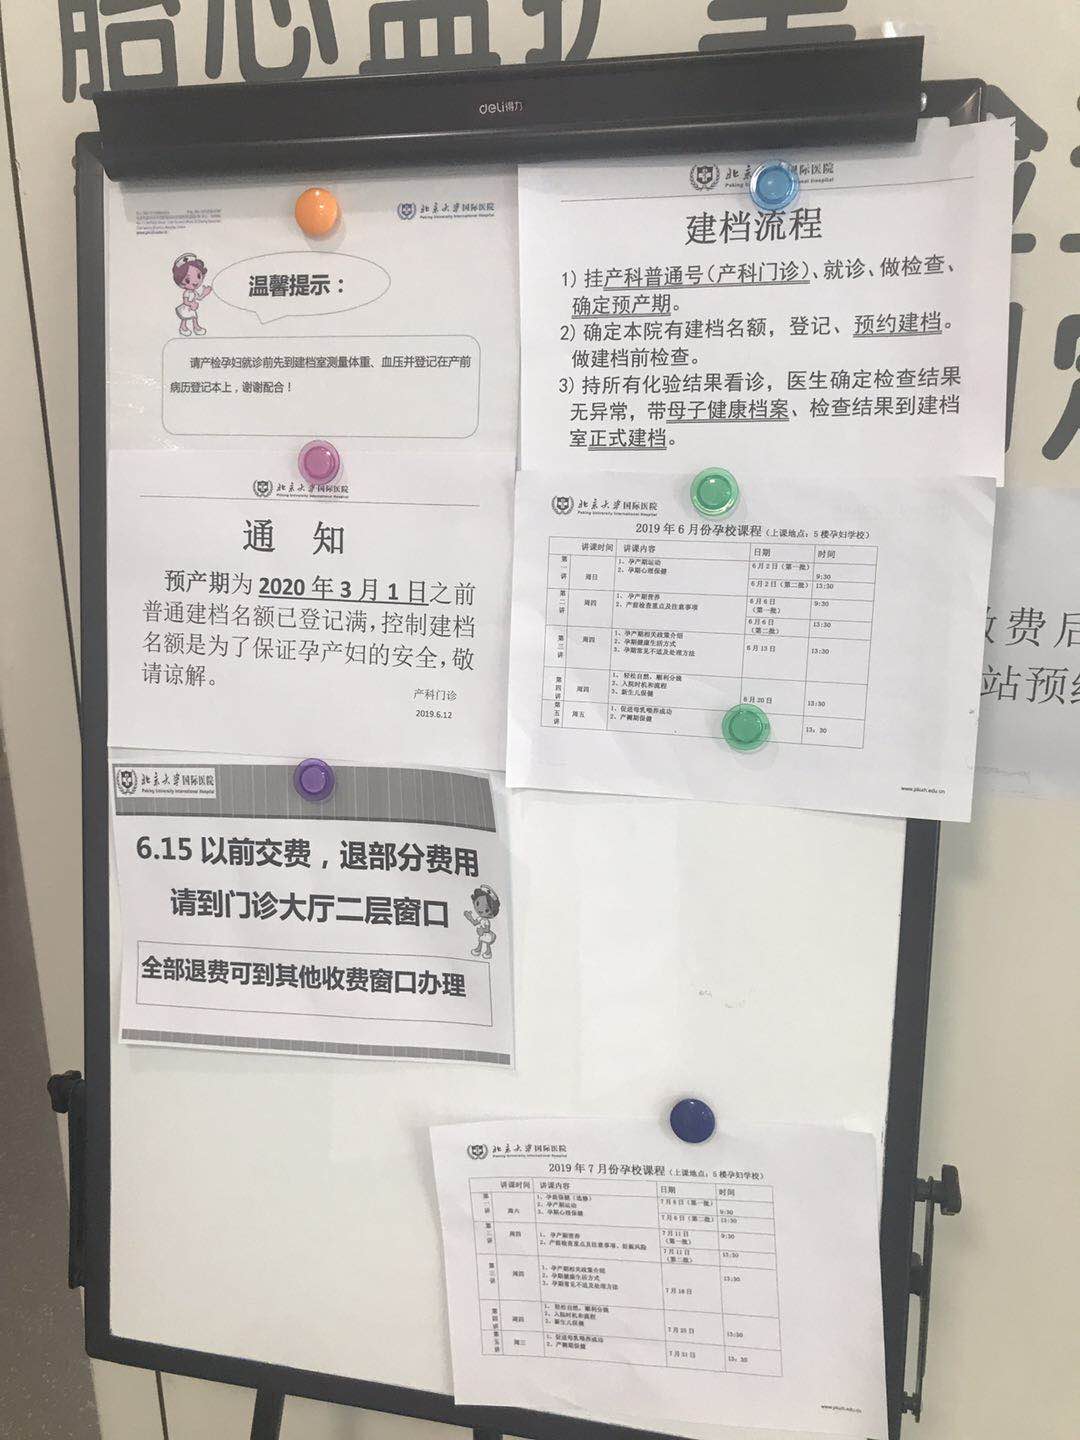 胎心监护室
deli得力
北京大学国际医院
Peking University International Hospital
温馨提示：
请产检孕妇就诊前先到建档室测量体重、血压并登记在产前
病历登记本上，谢谢配合！
北京大学国际医院
Peking University International Hospital
建档流程
1）挂产科普通号（产科门诊）、就诊、做检查、
确定预产期。
2）确定本院有建档名额，登记、预约建档。
做建档前检查。
3）持所有化验结果看诊，医生确定检查结果
无异常，带母子健康档案、检查结果到建档
室正式建档。
北京大学国际医院
Peking University International Hospital
通 知
预产期为 2020 年 3 月 1 日之前
普通建档名额已登记满，控制建档
名额是为了保证孕产妇的安全，敬
请谅解。
产科门诊
2019.6.12
北京大学国际医院
Peking University International Hospital
2019 年 6 月份孕校课程（上课地点：5 楼孕妇学校）
讲课时间 讲课内容 日期 时间
第一讲 周日 1、孕产期运动
2、孕期心理保健
6 月 2 日（第一批） 9:30
6 月 2 日（第二批） 13:30
第二讲 周四 1、孕产期营养
2、产前检查重点及注意事项
6 月 6 日（第一批） 9:30
6 月 6 日（第二批） 13:30
第三讲 周四 1、孕产期相关政策介绍
2、孕期健康生活方式
3、孕期常见不适及处理方法
6 月 13 日 13:30
第四讲 周四 1、轻松自然、顺利分娩
2、入院时机和流程
3、新生儿保健
6 月 20 日 13:30
第五讲 周五 1、促进母乳喂养成功
2、产褥期保健
13：30
www.pkuih.edu.cn
北京大学国际医院
Peking University International Hospital
6.15 以前交费，退部分费用
请到门诊大厅二层窗口
全部退费可到其他收费窗口办理
缴费后
站预约
北京大学国际医院
Peking University International Hospital
2019 年 7 月份孕校课程（上课地点：5 楼孕妇学校）
讲课时间 讲课内容 日期 时间
第一讲 周六 1、孕前保健（选修）
2、孕产期运动
3、孕期心理保健
7 月 6 日（第一批） 9:30
7 月 6 日（第二批） 13:30
第二讲 周四 1、孕产期营养
2、产前检查重点及注意事项、妊娠风险
7 月 11 日（第一批） 9:30
7 月 11 日（第二批） 13:30
第三讲 周四 1、孕产期相关政策介绍
2、孕期健康生活方式
3、孕期常见不适及处理方法
7 月 18 日 13:30
第四讲 周四 1、轻松自然、顺利分娩
2、入院时机和流程
3、新生儿保健
7 月 25 日 13:30
第五讲 周三 1、促进母乳喂养成功
2、产褥期保健
7 月 31 日 13：30
www.pkuih.edu.cn